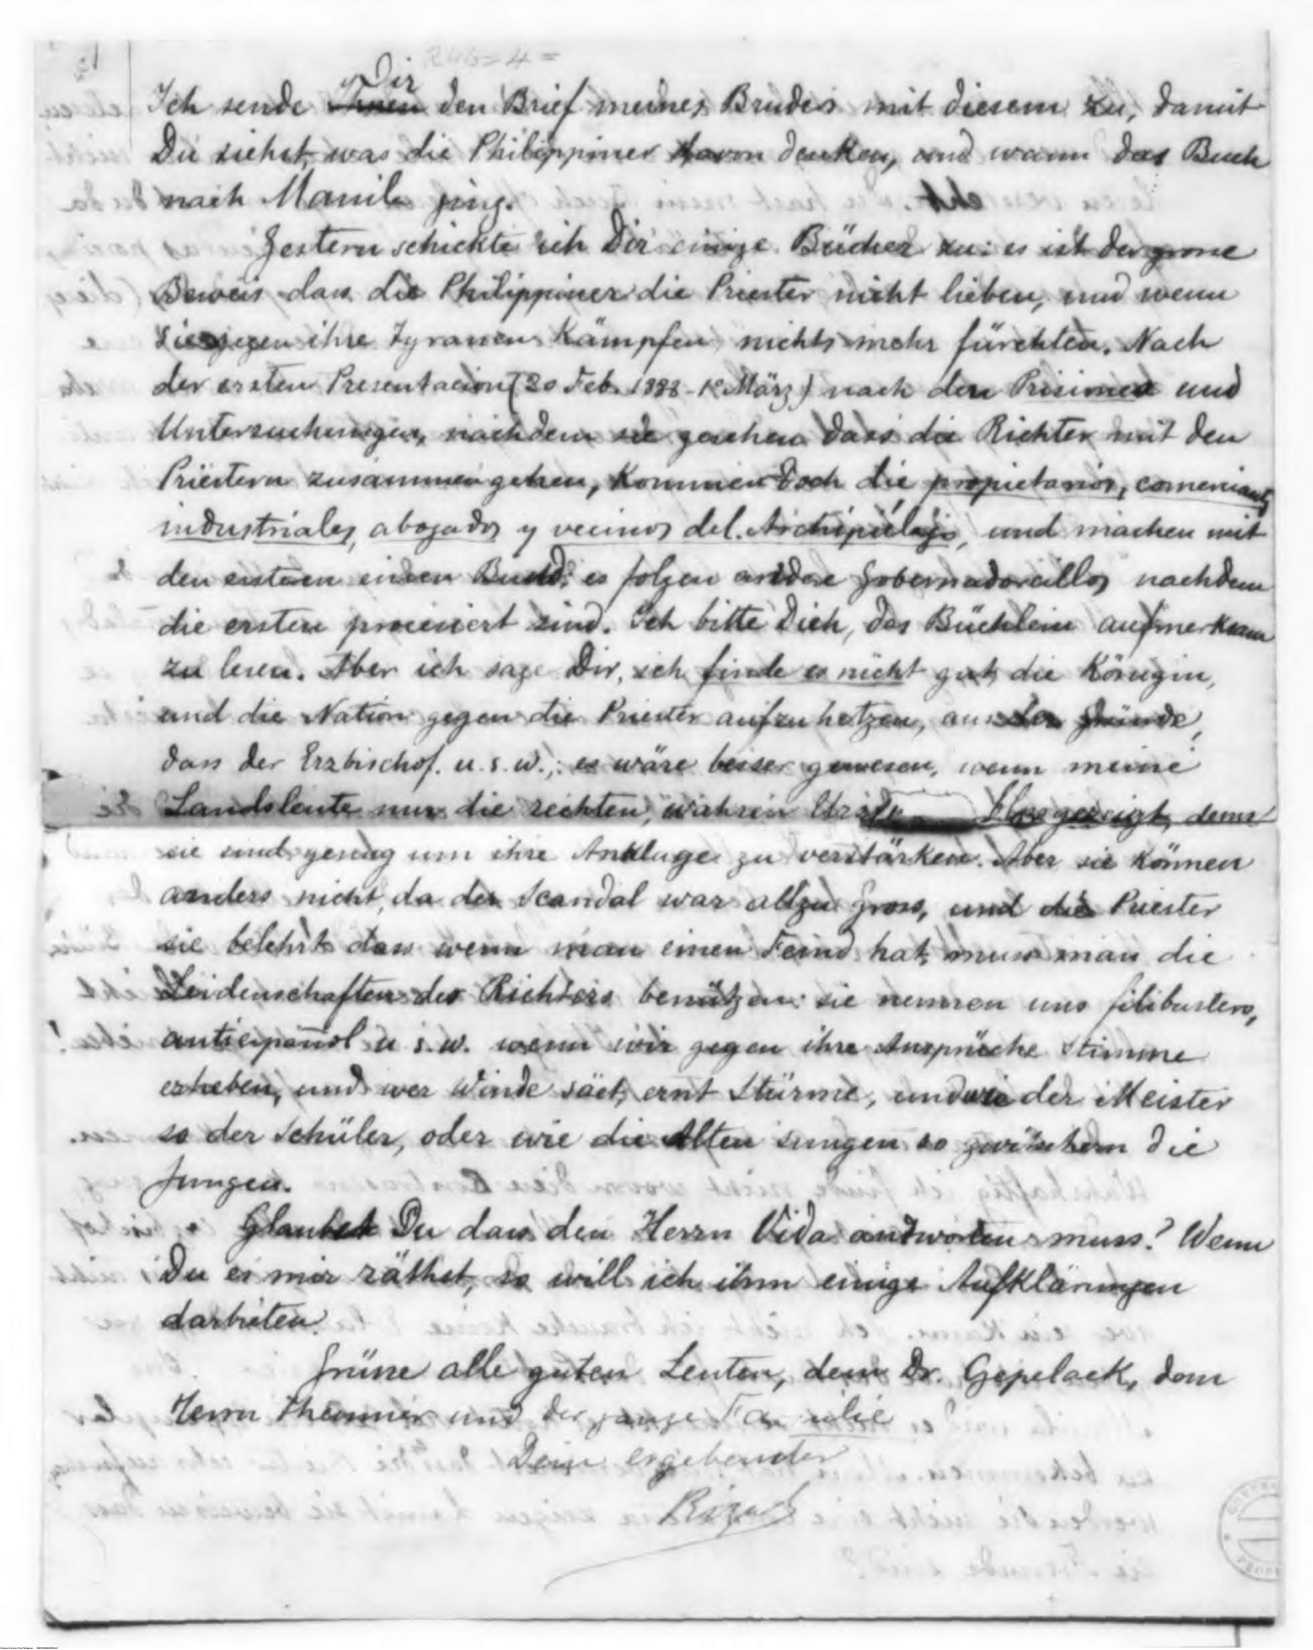 Ich sende Dir den Brief meines Bruders mit diesem zu, damit
Du siehst, was die Philippiner davon denken, und wann das Buch
nach Manila ging.
Gestern schickte ich Dir einige Bücher zu: es ist der grosse
Beweis dass die Philippiner die Priester nicht lieben, und wenn
sie gegen ihre Tyranen Kämpfen nichts mehr fürchten. Nach
der ersten Presentacion (20 Feb. 1888 - 1º März) nach den und
Untersuchungen, nachdem sie gesehen dass die Richter mit den
Priestern zusammen gehen, Kommen doch die propietarios, comerciantes
industriales, abogados y vecinos del Archipiélago, und machen mit
den ersteren einen Bund: es folgen andere Gobernadorcillos nachdem
die ersten sind. Ich bitte Dich, das Büchlein aufmerksam
zu lesen. Aber ich sage Dir, ich finde es nicht gut, die Königin,
und die Nation gegen die Priester aufzuhetzen, aus der Gründe,
dass der Erzbischof. u. s. w.; es wäre besser gewesen, wenn meine
Landsleute nur die rechten, wahren gezeigt, denn
sie sind genug um ihre Anklage zu verstärken. Aber sie können
anders nicht, da der Scandal war allzu gross, und die Priester
sie belehrt dass wenn man einen Feind hat, muss man die
Leidenschaften des Richters benützen: sie nennen uns filibusteros,
antiespañol u. s. w. wenn wir gegen ihre Ansprüche Stimme
erheben, und wer Winde säet, ernt Stürme, und wie der Meister
so der Schüler, oder wie die Alten sungen so zwitschern die
Jungen.
Glaubst Du dass den Herrn Vida andworten muss? Wenn
Du es mir räthst, so will ich ihm einige Aufklärungen
darbieten.
Grüsse alle guten Leuten, dem Dr. Gepelack, dem
Herrn und der ganze Familie
Dein ergebenster
Rizal